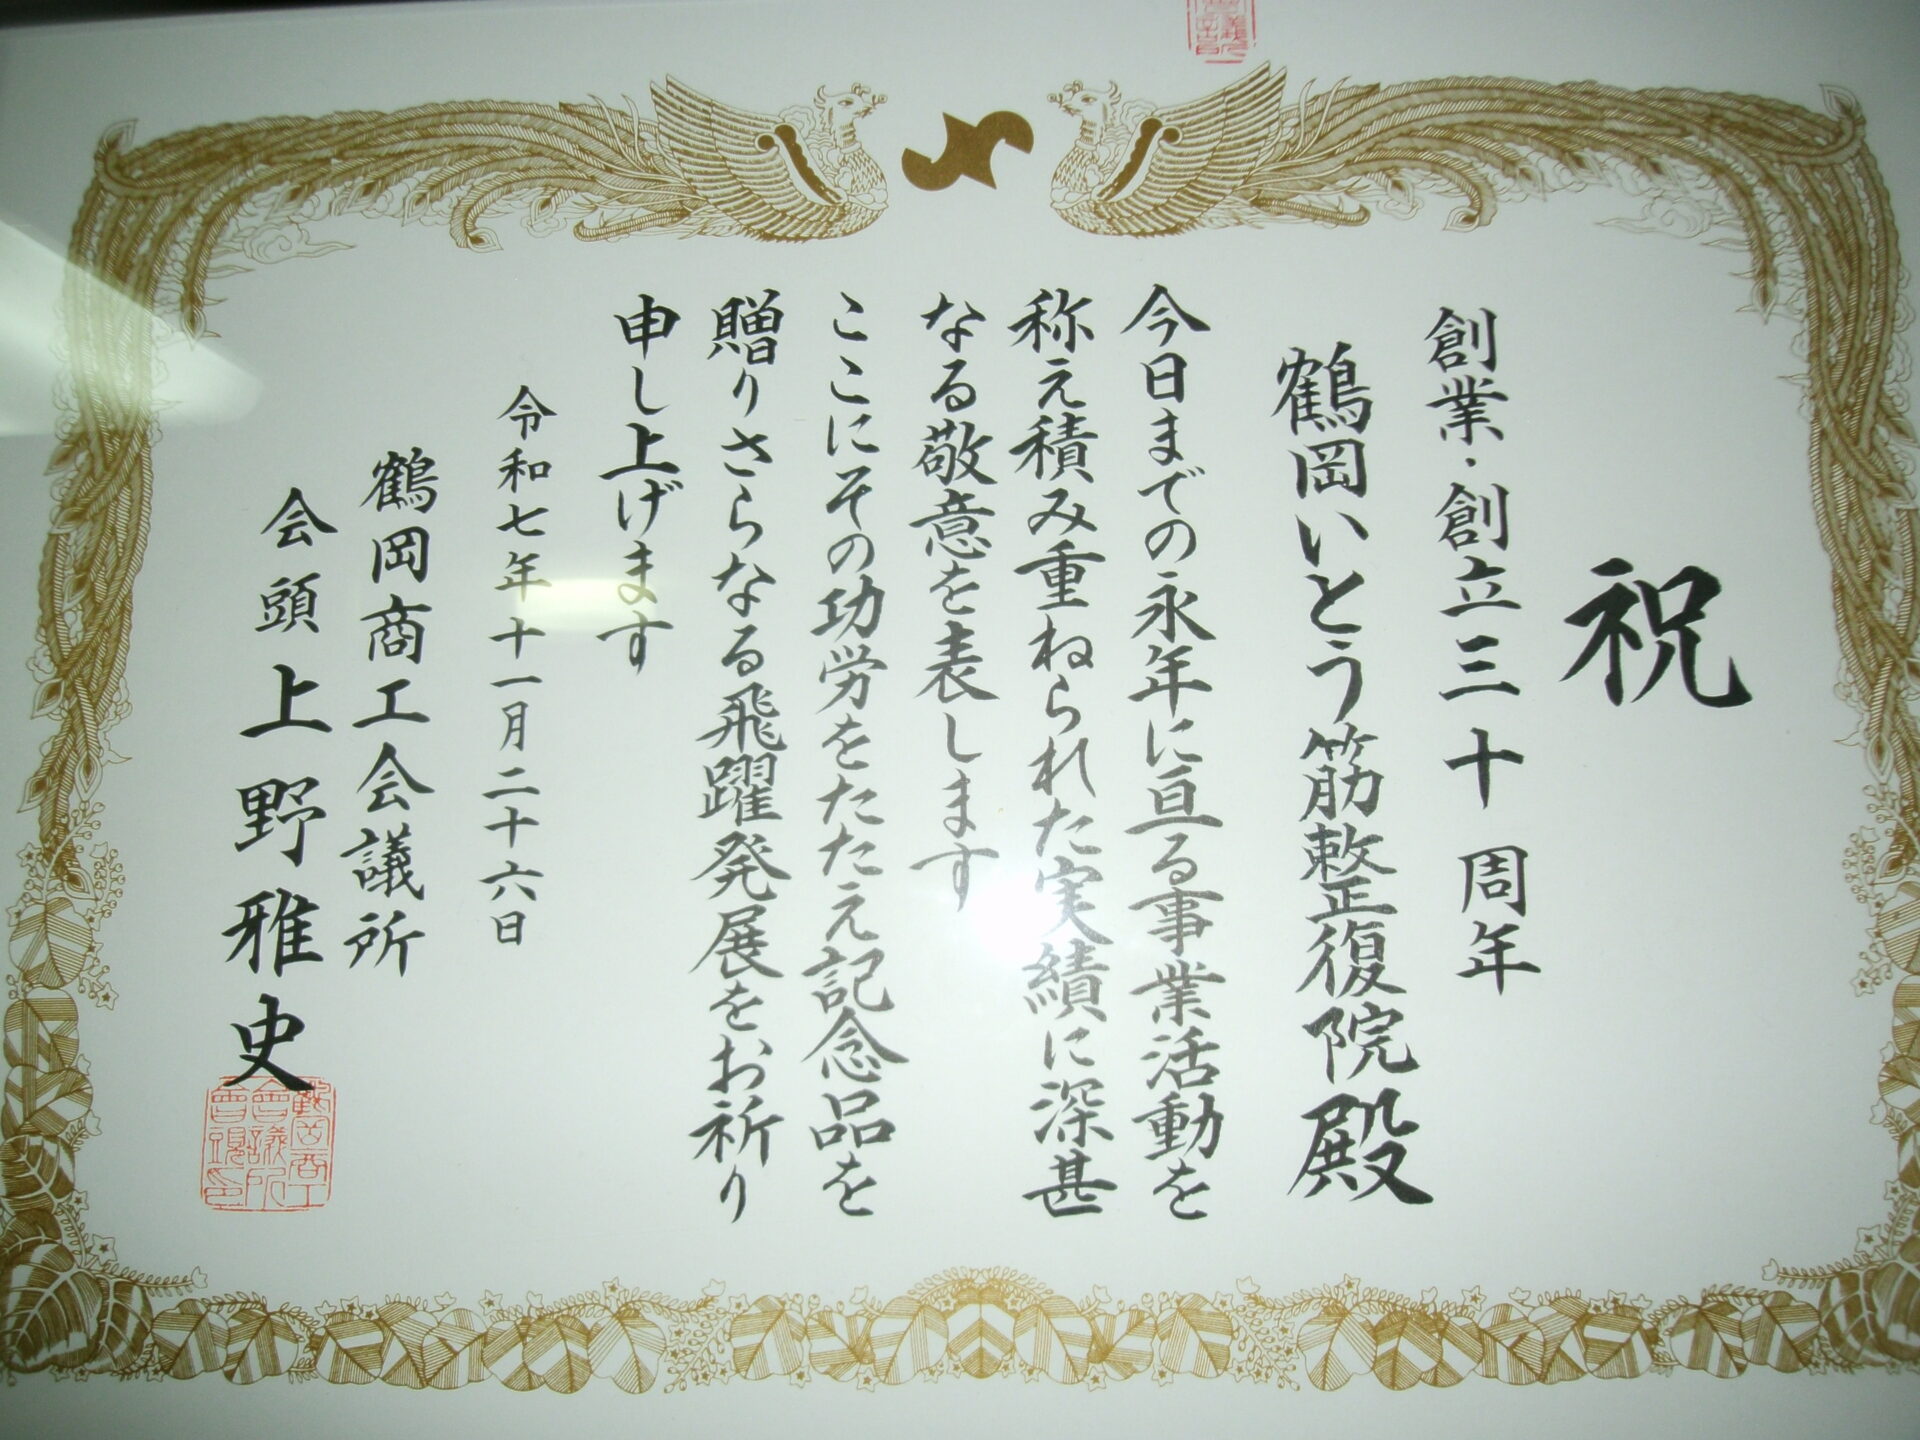 祝
創業・創立三十周年
鶴岡いとう筋整復院殿
今日までの永年に亘る事業活動を
称え積み重ねられた実績に深甚
なる敬意を表します
ここにその功労をたたえ記念品を
贈りさらなる飛躍発展をお祈り
申し上げます
令和七年十一月二十六日
鶴岡商工会議所
会頭上野雅史
鶴岡商工
會議所
會頭之印